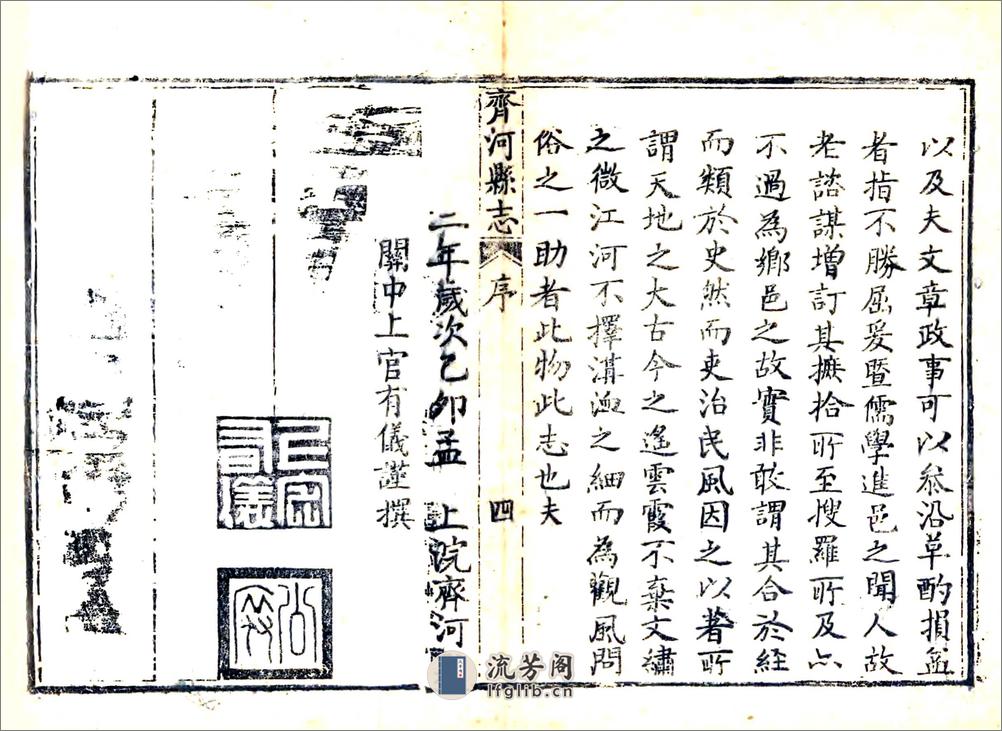 以及夫文章政事可以叅沿革酌損益
者指不勝屈爰暨儒學進邑之聞人故
老諮謀增訂其摭拾所至搜羅所及亦
不過為鄉邑之故實非敢謂其合於經
而類於史然而吏治民風因之以著所
謂天地之大古今之遙雲霞不棄文繡
之微江河不擇溝洫之細而為觀風問
俗之一助者此物此志也夫
齊河縣志
序
四
二年歲次乙卯孟
上院齊河
關中上官有儀謹撰
上官有儀
流芳阁
lfglib.cn